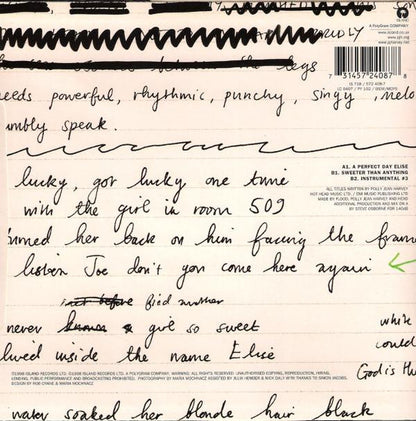 A PolyGram COMPANY
www.island.co.uk
www.pjh.org
www.pjharvey.net
between the legs
7 31457 24087 8
needs powerful, rhythmic, punchy, singy, melo
IS 718 / 572 408-7
umbly speak.
A1. A PERFECT DAY ELISE
B1. SWEETER THAN ANYTHING
B2. INSTRUMENTAL #3
lucky, got lucky one time
ALL TITLES WRITTEN BY POLLY JEAN HARVEY
HOT HEAD MUSIC LTD / EMI MUSIC PUBLISHING LTD
MADE BY FLOOD, POLLY JEAN HARVEY AND HEAD
ADDITIONAL PRODUCTION AND MIX ON A
BY STEVE OSBORNE FOR 140dB
with the girl in room 509
turned her back on him facing the fram
listen Joe don't you come here again
not before find another
never known a girl so sweet
while
lived inside the name Elise
could
God is th
©1998 ISLAND RECORDS LTD. ℗1998 ISLAND RECORDS LTD. A POLYGRAM COMPANY. WARNING: ALL RIGHTS RESERVED. UNAUTHORISED COPYING, REPRODUCTION, HIRING,
LENDING, PUBLIC PERFORMANCE AND BROADCASTING PROHIBITED. PHOTOGRAPHY BY MARIA MOCHNACZ
DESIGN BY ROB CRANE & MARIA MOCHNACZ
water soaked her blonde hair black